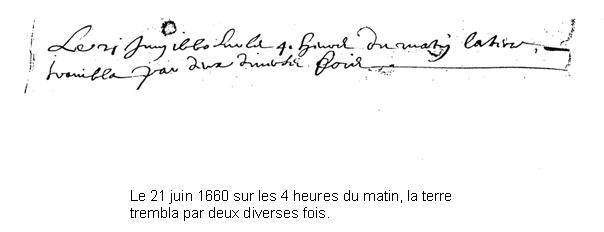 Le 21 Juin 1660 sur les 4. heures du matin la terre
trembla par deux diverses fois
Le 21 juin 1660 sur les 4 heures du matin, la terre
trembla par deux diverses fois.